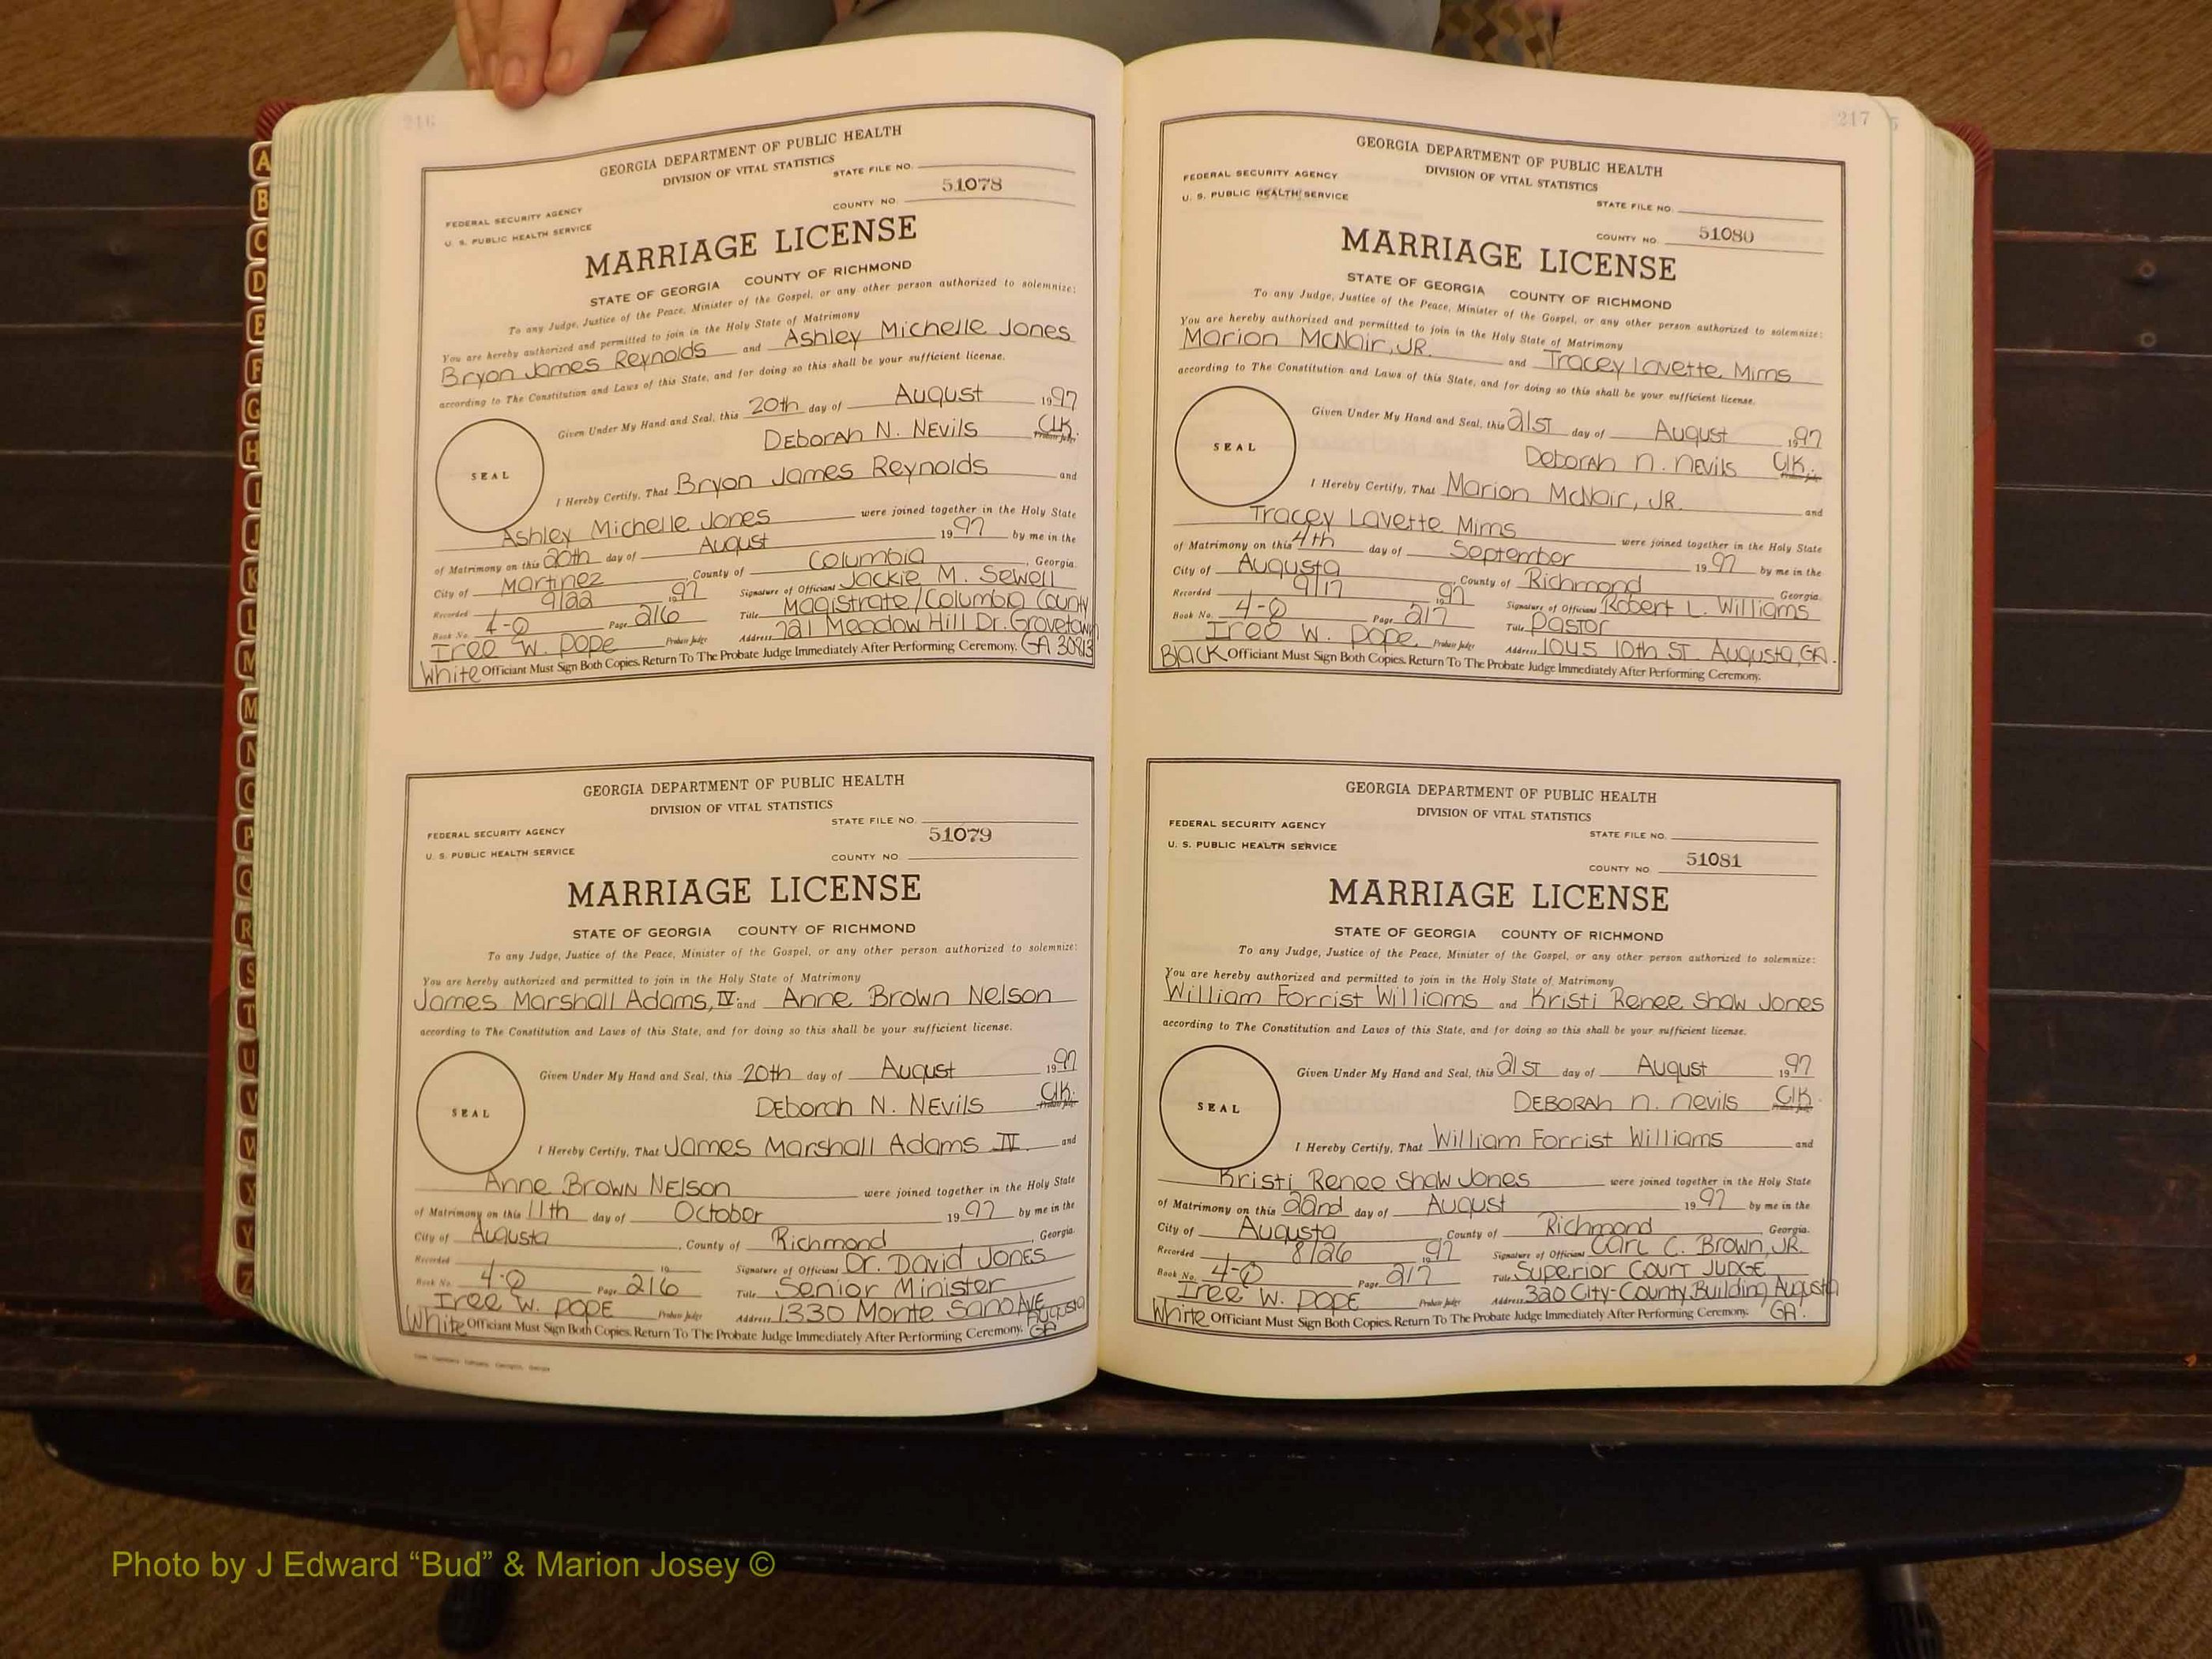 A
B
C
D
E
F
G
H
I
J
K
L
M
M
N
O
P
Q
R
S
T
U
V
W
X
Y
Z
216
GEORGIA DEPARTMENT OF PUBLIC HEALTH
DIVISION OF VITAL STATISTICS
STATE FILE NO.
51078
FEDERAL SECURITY AGENCY
COUNTY NO.
U. S. PUBLIC HEALTH SERVICE
MARRIAGE LICENSE
STATE OF GEORGIA COUNTY OF RICHMOND
To any Judge, Justice of the Peace, Minister of the Gospel, or any other person authorized to solemnize:
You are hereby authorized and permitted to join in the Holy State of Matrimony
Bryon James Reynolds and Ashley Michelle Jones
according to The Constitution and Laws of this State, and for doing so this shall be your sufficient license.
Given Under My Hand and Seal, this 20th day of August 1997
Deborah N. Nevils Clk. Probate Judge
SEAL
I Hereby Certify, That Bryon James Reynolds and
Ashley Michelle Jones were joined together in the Holy State
of Matrimony on this 20th day of August 1997 by me in the
City of Martinez, County of Columbia, Georgia.
Recorded 9/22 1997 Signature of Officiant Jackie M. Sewell
Book No. 4-Q Page 216 Title Magistrate/Columbia County
Iree W. Pope Probate Judge Address 721 Meadow Hill Dr. Grovetown
White Officiant Must Sign Both Copies. Return To The Probate Judge Immediately After Performing Ceremony. GA 30813
GEORGIA DEPARTMENT OF PUBLIC HEALTH
DIVISION OF VITAL STATISTICS
STATE FILE NO.
FEDERAL SECURITY AGENCY
51079
U. S. PUBLIC HEALTH SERVICE
COUNTY NO.
MARRIAGE LICENSE
STATE OF GEORGIA COUNTY OF RICHMOND
To any Judge, Justice of the Peace, Minister of the Gospel, or any other person authorized to solemnize:
You are hereby authorized and permitted to join in the Holy State of Matrimony
James Marshall Adams, IV and Anne Brown Nelson
according to The Constitution and Laws of this State, and for doing so this shall be your sufficient license.
Given Under My Hand and Seal, this 20th day of August 1997
Deborah N. Nevils Clk. Probate Judge
SEAL
I Hereby Certify, That James Marshall Adams IV. and
Anne Brown Nelson were joined together in the Holy State
of Matrimony on this 11th day of October 1997 by me in the
City of Augusta, County of Richmond, Georgia.
Recorded 19 Signature of Officiant Dr. David Jones
Book No. 4-Q Page 216 Title Senior Minister
Iree W. Pope Probate Judge Address 1330 Monte Sano Ave Augusta
White Officiant Must Sign Both Copies. Return To The Probate Judge Immediately After Performing Ceremony. GA
217
GEORGIA DEPARTMENT OF PUBLIC HEALTH
DIVISION OF VITAL STATISTICS
FEDERAL SECURITY AGENCY
U. S. PUBLIC HEALTH SERVICE
STATE FILE NO.
COUNTY NO. 51080
MARRIAGE LICENSE
STATE OF GEORGIA COUNTY OF RICHMOND
To any Judge, Justice of the Peace, Minister of the Gospel, or any other person authorized to solemnize:
You are hereby authorized and permitted to join in the Holy State of Matrimony
Marion McNair, JR. and Tracey Lavette Mims
according to The Constitution and Laws of this State, and for doing so this shall be your sufficient license.
Given Under My Hand and Seal, this 21st day of August 1997
Deborah N. Nevils Clk. Probate Judge
SEAL
I Hereby Certify, That Marion McNair, JR. and
Tracey Lavette Mims were joined together in the Holy State
of Matrimony on this 4th day of September 1997 by me in the
City of Augusta, County of Richmond Georgia.
Recorded 9/17 1997 Signature of Officiant Robert L. Williams
Book No. 4-Q Page 217 Title Pastor
Iree W. Pope. Probate Judge Address 1045 10th St. Augusta, GA.
Black Officiant Must Sign Both Copies. Return To The Probate Judge Immediately After Performing Ceremony.
GEORGIA DEPARTMENT OF PUBLIC HEALTH
DIVISION OF VITAL STATISTICS
FEDERAL SECURITY AGENCY
STATE FILE NO.
U. S. PUBLIC HEALTH SERVICE
COUNTY NO 51081
MARRIAGE LICENSE
STATE OF GEORGIA COUNTY OF RICHMOND
To any Judge, Justice of the Peace, Minister of the Gospel, or any other person authorized to solemnize:
You are hereby authorized and permitted to join in the Holy State of Matrimony
William Forrist Williams and Kristi Renee Shaw Jones
according to The Constitution and Laws of this State, and for doing so this shall be your sufficient license.
Given Under My Hand and Seal, this 21st day of August 1997
Deborah N. Nevils Clk. Probate Judge
SEAL
I Hereby Certify, That William Forrist Williams and
Kristi Renee Shaw Jones were joined together in the Holy State
of Matrimony on this 22nd day of August 1997 by me in the
City of Augusta, County of Richmond Georgia.
Recorded 8/26 1997 Signature of Officiant Carl C. Brown, JR.
Book No. 4-Q Page 217 Title Superior Court Judge
Iree W. Pope Probate Judge Address 320 City-County Building Augusta
White Officiant Must Sign Both Copies. Return To The Probate Judge Immediately After Performing Ceremony. GA.
Photo by J Edward “Bud” & Marion Josey ©